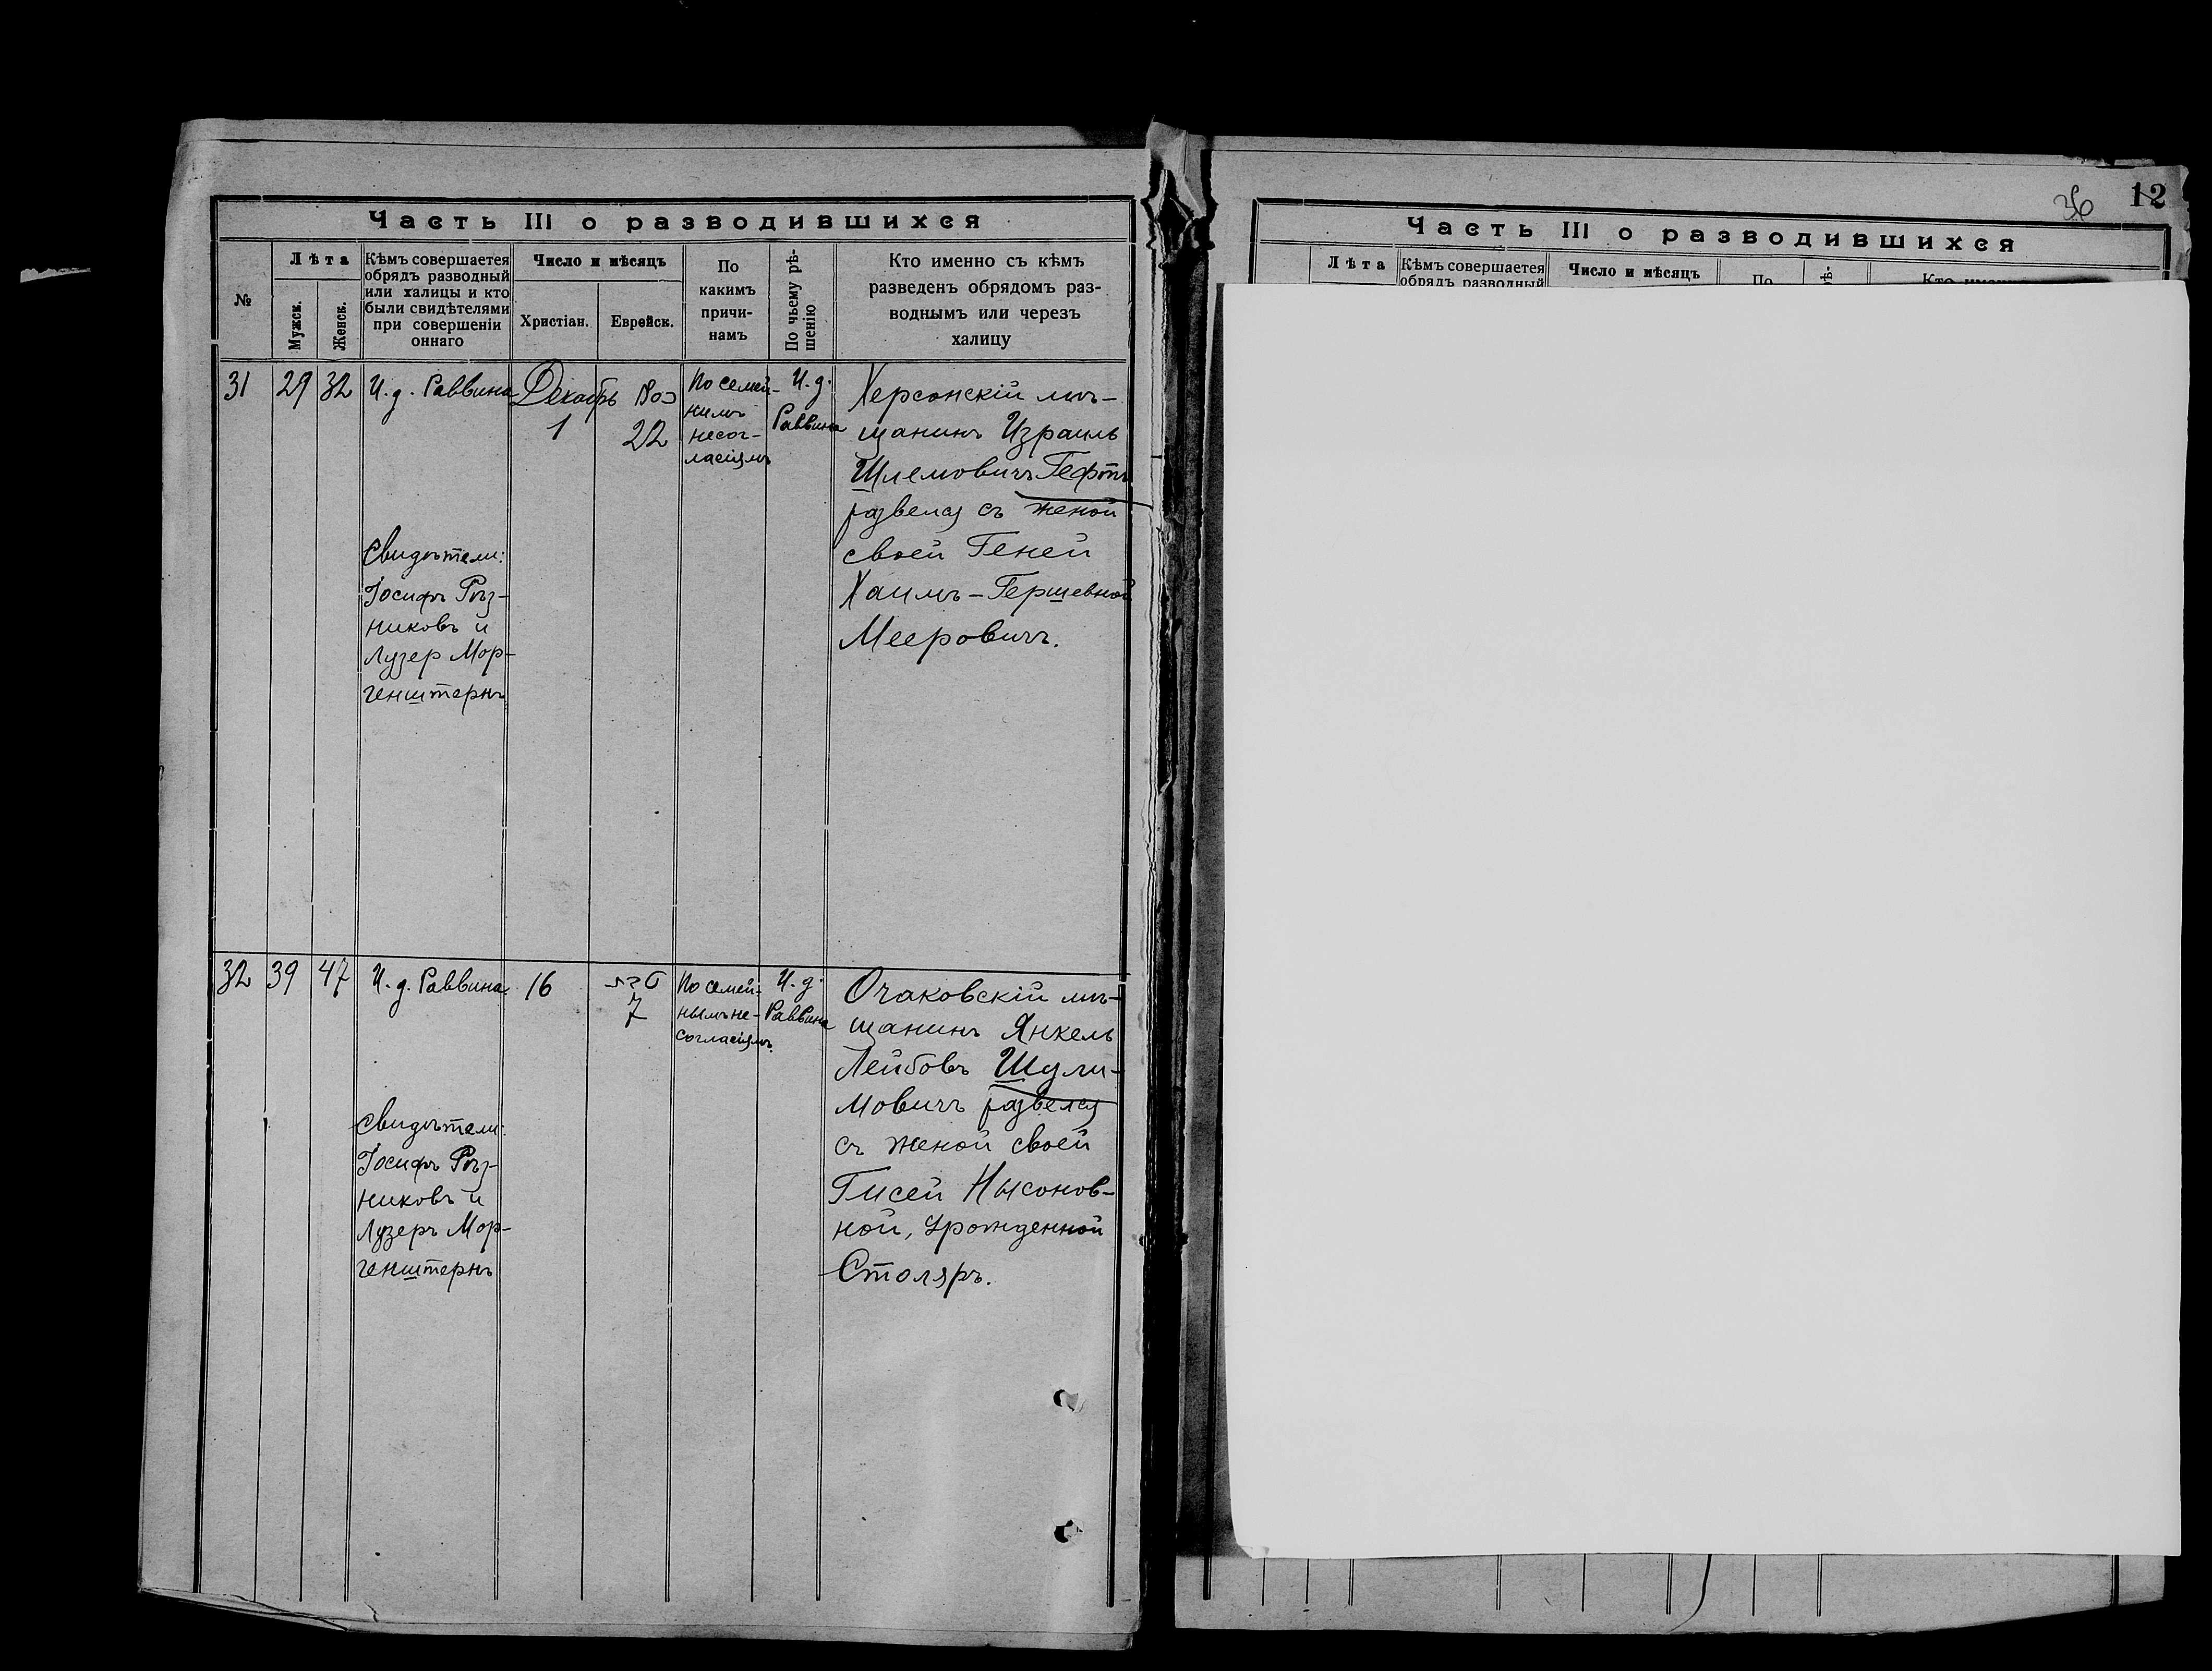 Часть III о разводившихся
№
Лѣта
Мужск.
Женск.
Кѣмъ совершается
обрядъ разводный
или халицы и кто
были свидѣтелями
при совершеніи
оннаго
Число и мѣсяцъ
Христіан.
Еврейск.
По
какимъ
причи-
намъ
По чьему рѣ-
шенію
Кто именно съ кѣмъ
разведенъ обрядомъ раз-
воднымъ или черезъ
халицу
31
29
32
И.д. Раввина
Свидѣтели:
Іосифъ Рѣз-
никовъ и
Лузер Мор-
генштернъ
Декабрь
1
22
По семей-
нымъ
несог-
ласіямъ
И.д.
Раввина
Херсонскій мѣ-
щанинъ Израиль
Шлемовичъ Гефтъ
развелся съ женой
своей Геней
Хаимъ-Гершевной
Мееровичъ.
32
39
47
И.д. Раввина
Свидѣтели:
Іосифъ Рѣз-
никовъ и
Лузеръ Мор-
генштернъ
16
טבת
7
По семей-
нымъ не-
согласіямъ.
И.д.
Раввина
Очаковскій мѣ-
щанинъ Янкель
Лейбовъ Шули-
мовичъ развелся
съ женой своей
Гисей Нысонов-
ной, урожденной
Столяръ.
36
12
Часть III о разводившихся
Лѣта
Кѣмъ совершается
обрядъ разводный
Число и мѣсяцъ
По